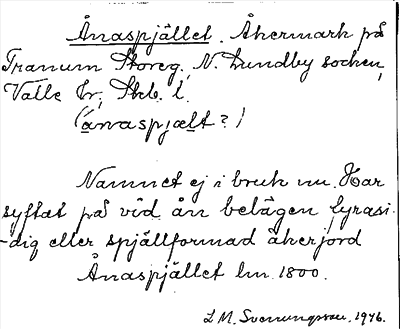 Ånaspjället. Åkermark på
Tranum Storeg., N. Lundby socken,
Valle hr, Skb. l.
(å̱naspjælt?)
Namnet ej i bruk nu. Har
syftat på vid ån belägen fyrasi-
-dig eller spjällformad åkerjord
Ånaspjället lm. 1800.
L M. Svenungsson. 1946.